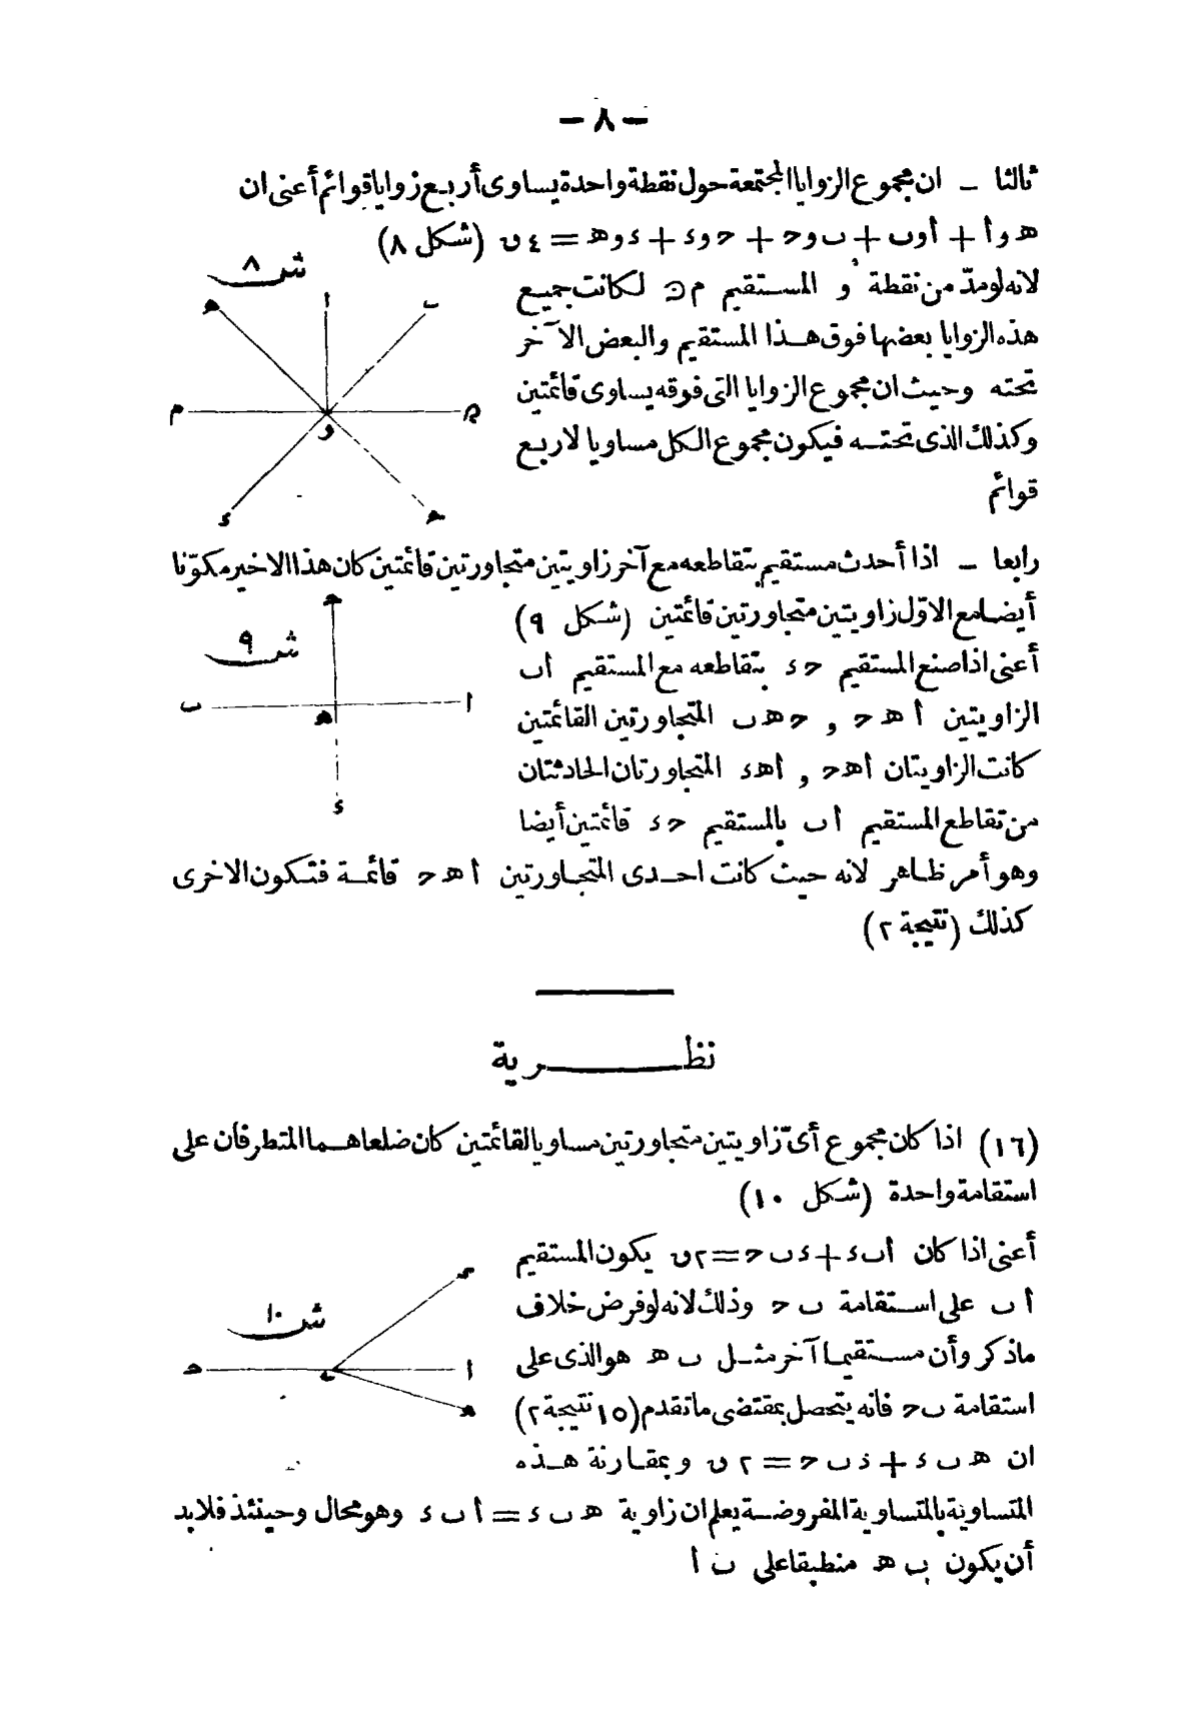 — ٨ —
ثالثا — ان مجموع الزوايا المجتمعة حول نقطة واحدة يساوى أربع زوايا قوائم أعنى ان
هوأ + أوب + بوح + حوء + ءوه = ٤ ق (شكل ٨)
ش ٨
أ
ب
ه
م
و
ء
ح
لانه لو مدّ من نقطة و المستقيم م ن لكانت جميع
هذه الزوايا بعضها فوق هذا المستقيم والبعض الآخر
تحته وحيث ان مجموع الزوايا التى فوقه يساوى قائمتين
وكذلك الذى تحته فيكون مجموع الكل مساويا لاربع
قوائم
رابعا — اذا أحدث مستقيم بتقاطعه مع آخر زاويتين متجاورتين قائمتين كان هذا الاخير مكوّنا
أيضا مع الاوّل زاويتين متجاورتين قائمتين (شكل ٩)
ش ٩
ح
ب
ه
أ
ء
أعنى اذا صنع المستقيم ح ء بتقاطعه مع المستقيم أب
الزاويتين أ ه ح و ح ه ب المتجاورتين القائمتين
كانت الزاويتان أهح و أهء المتجاورتان الحادثتان
من تقاطع المستقيم أ ب بالمستقيم ح ء قائمتين أيضا
وهو أمر ظاهر لانه حيث كانت احدى المتجاورتين أ ه ح قائمة فتكون الاخرى
كذلك (نتيجة ٢)
نظرية
(١٦) اذا كان مجموع أىّ زاويتين متجاورتين مساويا لقائمتين كان ضلعاهما المتطرفان على
استقامة واحدة (شكل ١٠)
ش ١٠
ء
ح
ب
أ
ه
أعنى اذا كان أبء + ءبح = ٢ق يكون المستقيم
أ ب على استقامة ب ح وذلك لانه لو فرض خلاف
ماذكر وأن مستقيما آخر مثل ب ه هو الذى على
استقامة ب ح فانه يتحصل بمقتضى ماتقدم (١٥ نتيجة ٢)
ان ه ب ء + ء ب ح = ٢ ق وبمقارنة هذه
المتساوية بالمتساوية المفروضة يعلم ان زاوية ه ب ء = أ ب ء وهو محال وحينئذ فلابد
أن يكون ب ه منطبقا على ب أ